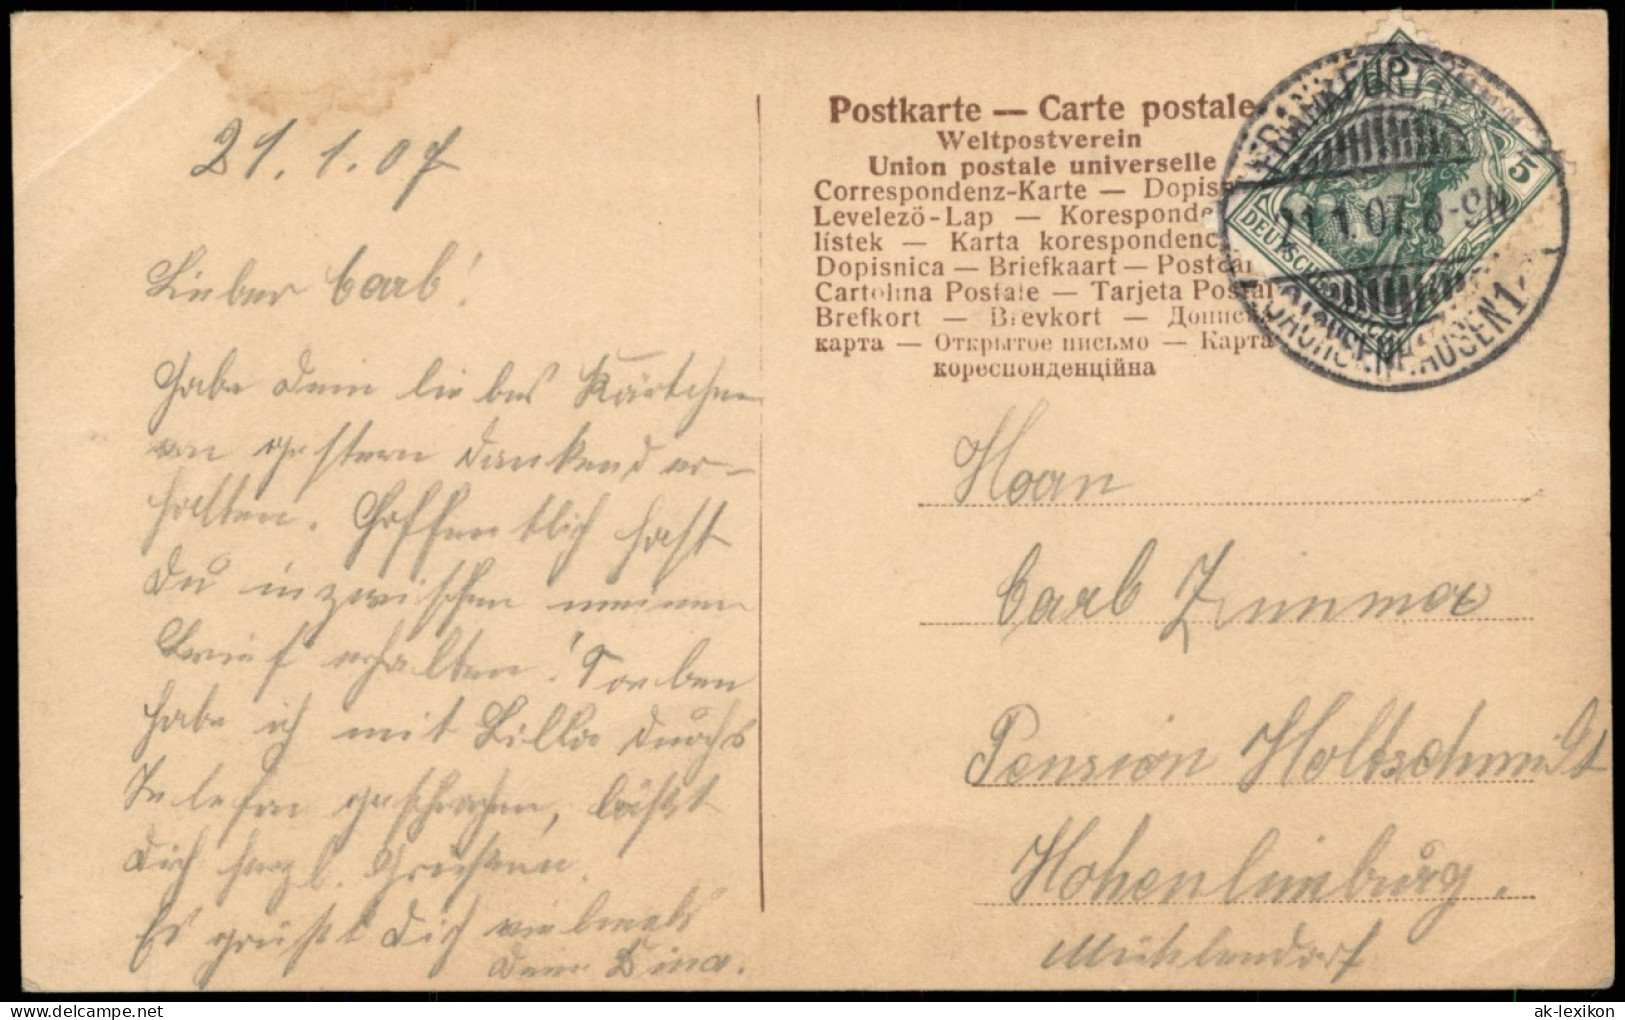 21.1.07
Lieber Carl!
Habe Dein liebes Kärtchen
von gestern dankend er-
halten. Hoffentlich hast
Du inzwischen meinen
Brief erhalten! Soeben
habe ich mit Billa durchs
Telefon gesprochen, läßt
Dich herzl. Grüßen.
Es grüßt Dich vielmals
Deine Dina.
Postkarte — Carte postale
Weltpostverein
Union postale universelle
Correspondenz-Karte — Dopis
Levelező-Lap — Koresponde
lístek — Karta korespondenc
Dopisnica — Briefkaart — Postcar
Cartolina Postale — Tarjeta Postal
Brefkort — Brevkort — Дописн
карта — Открытое письмо — Карта
кореспонденційна
FRANKFURT
21.1.07.8-9N
SACHSENHAUSEN 1
5
DEUTSCHES REICH
Herrn
Carl Zimmer
Pension Holtschmidt
Hohenlimburg.
Mühlendorf
ak-lexikon